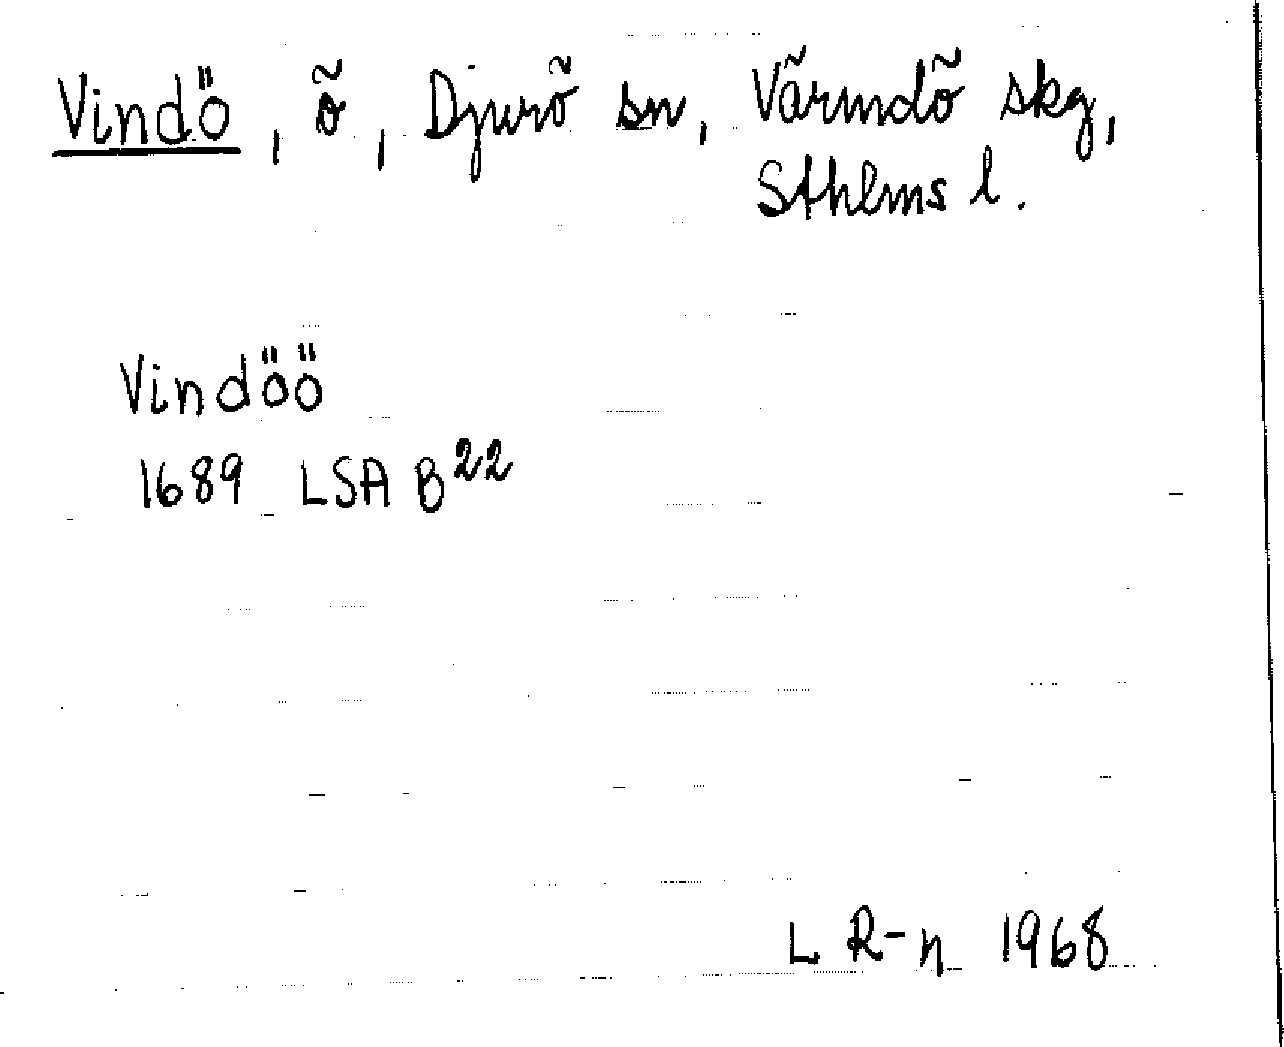 Vindö, ö, Djurö sn, Värmdö skg,
Sthlms l.
Vindöö
1689 LSA B22
L R-n 1968